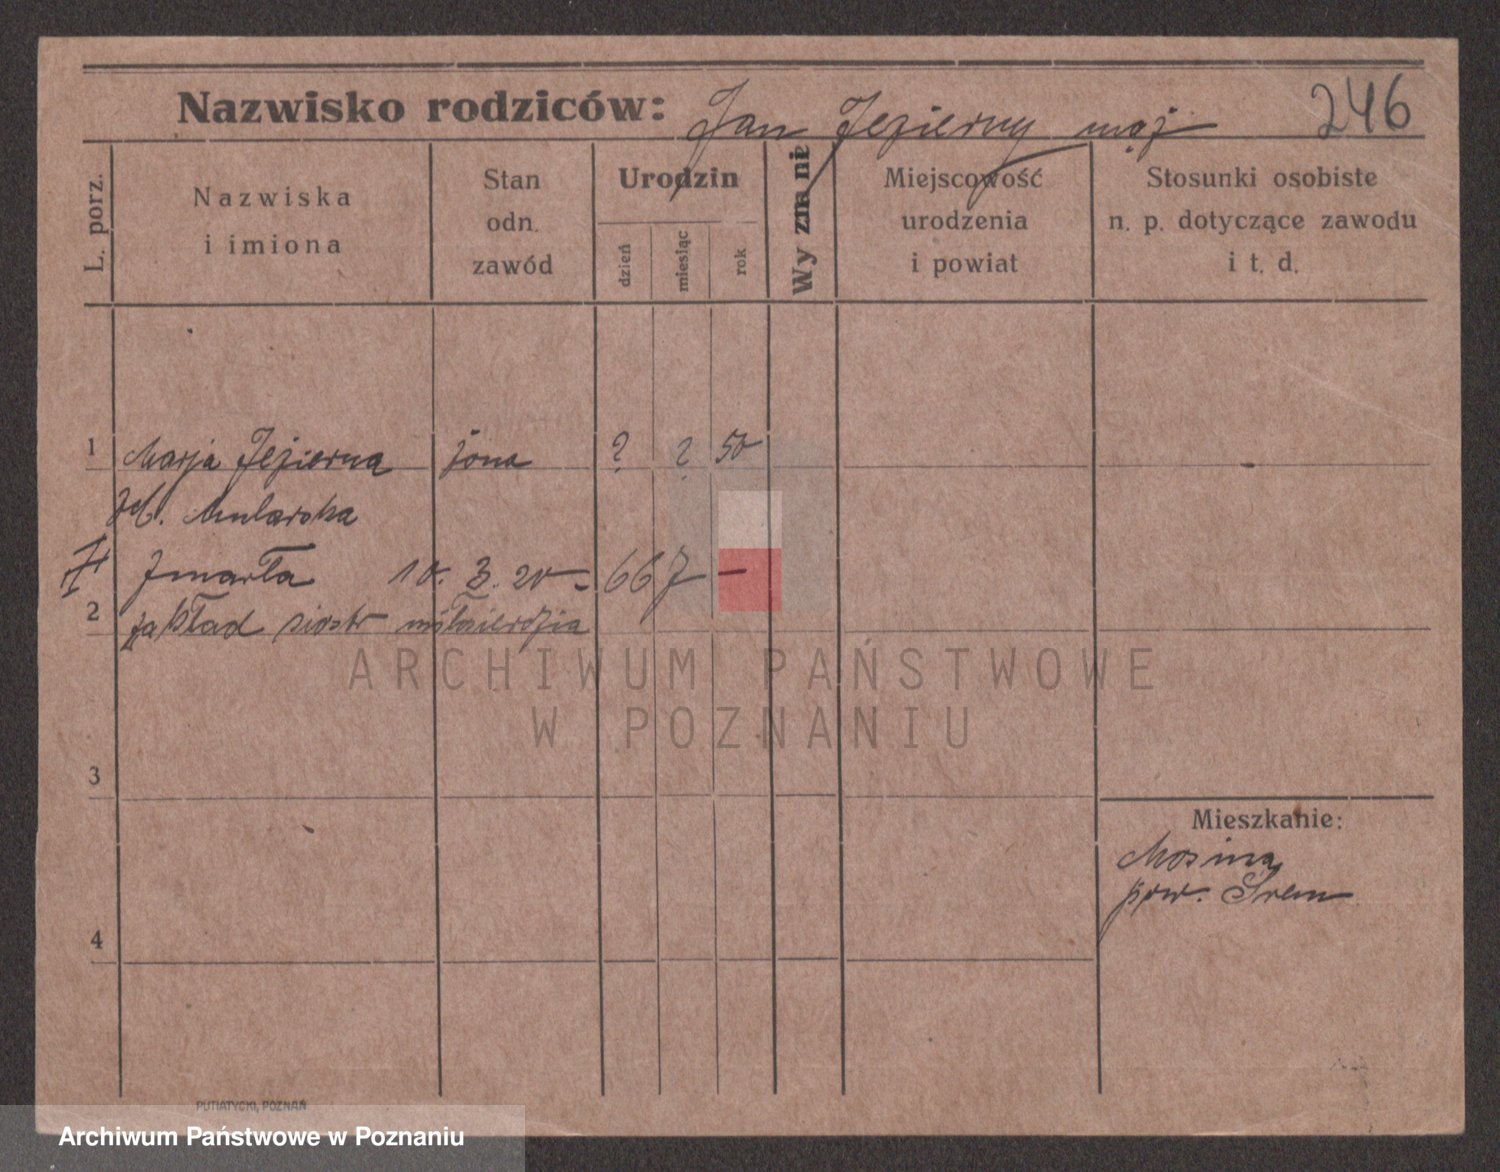 Nazwisko rodziców: Jan Jezierny mąż 246
L. porz.
Nazwiska
i imiona
Stan
odn.
zawód
Urodzin
dzień
miesiąc
rok
Wyznanie
Miejscowość
urodzenia
i powiat
Stosunki osobiste
n. p. dotyczące zawodu
i t. d.
1 Marja Jezierna żona ? ? 50
Mularska
Zmarła 10. 3. 20 667 —
2 zakład siostr miłosierdzia
ARCHIWUM PAŃSTWOWE
W POZNANIU
3
Mieszkanie:
Mosina
pow. Śrem
4
PUTIATYCKI, POZNAŃ
Archiwum Państwowe w Poznaniu